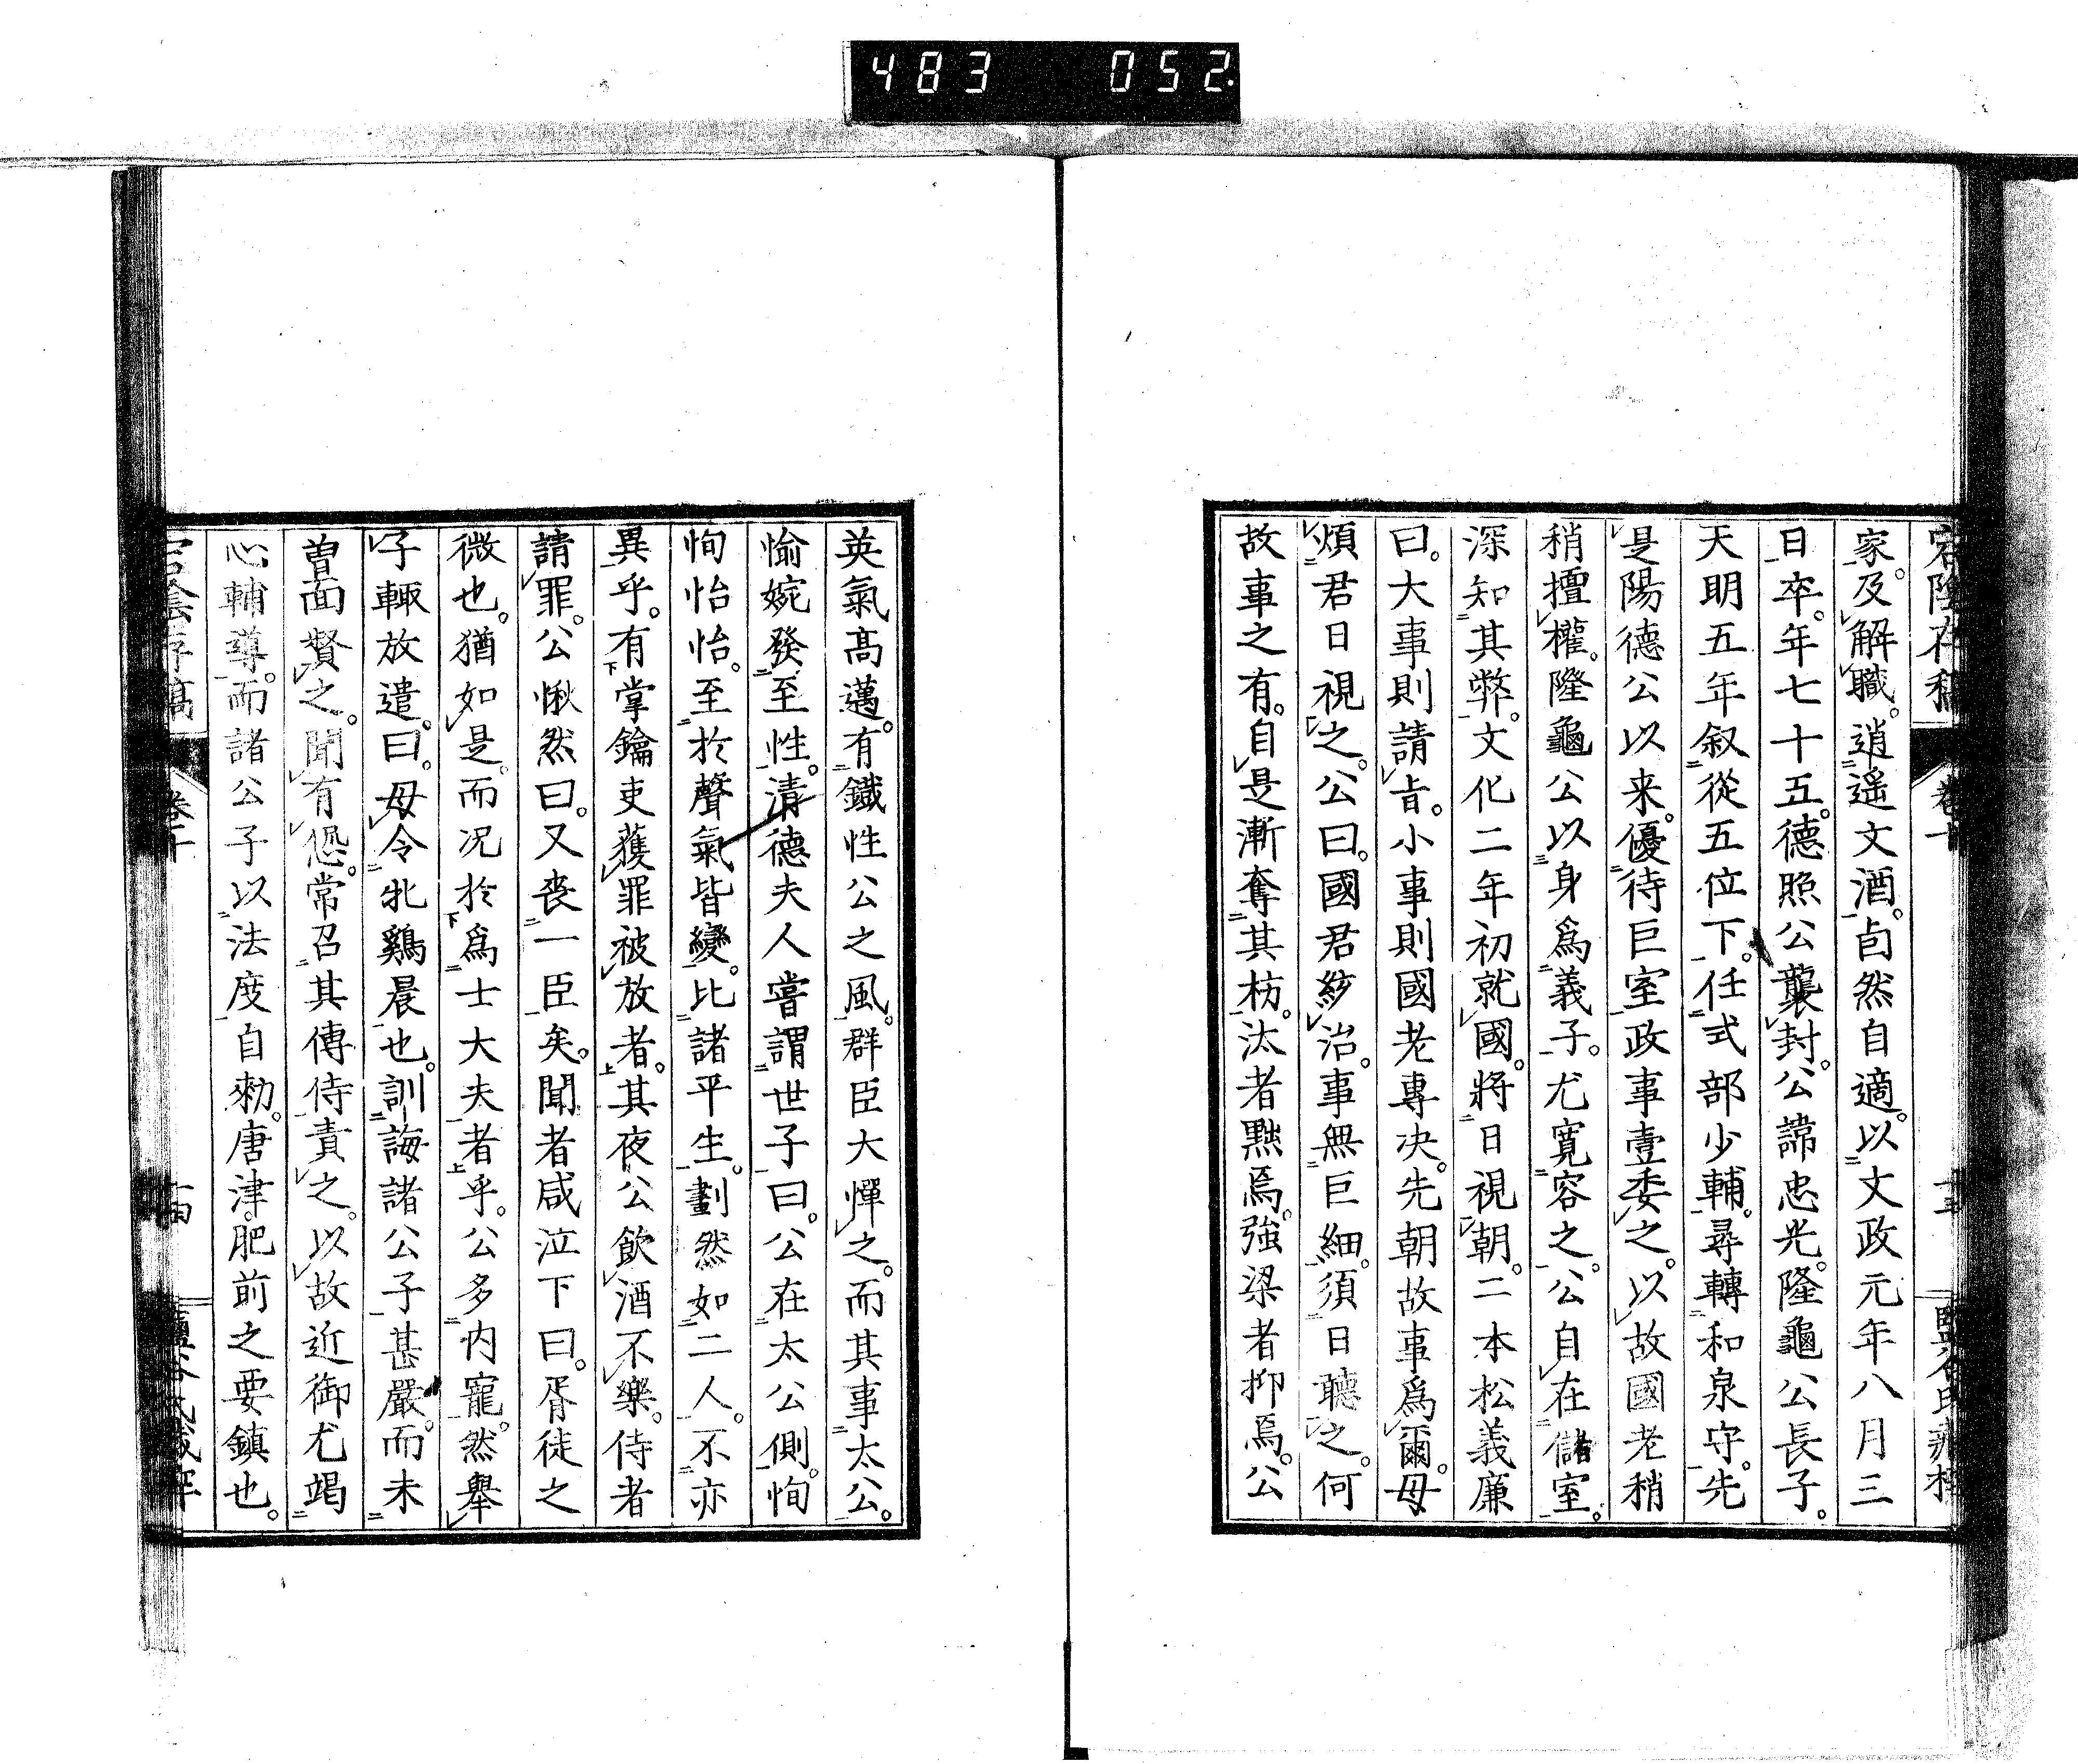 483 052
家。及解職。逍遙文酒。卣然自適。以文政元年八月三
日卒。年七十五。德照公襲封。公諱忠光。隆龜公長子。
天明五年叙從五位下。任式部少輔。尋轉和泉守。先
是陽德公以来。優待巨室政事壹委之。以故國老稍
稍擅權。隆龜公以身爲義子。尤寬容之。公自在儲室。
深知其弊。文化二年初就國。將日視朝。二本松義廉
曰。大事則請旨。小事則國老專决。先朝故事爲爾。毋
煩君日視之。公曰。國君紗治。事無巨細。須日聽之。何
故事之有。自是漸奪其枋。汰者黜焉。強梁者抑焉。公
英氣高邁。有鐵性公之風。群臣大憚之。而其事太公。
愉婉發至性。淸德夫人嘗謂世子曰。公在太公側。恂
恂怡怡。至於聲氣皆變。比諸平生。劃然如二人。不亦
異乎。有掌鑰吏獲罪被放者。其夜公飮酒不樂。侍者
請罪。公愀然曰。又喪一臣矣。聞者咸泣下曰。胥徒之
微也。猶如是。而况於爲士大夫者乎。公多内寵。然擧
子輙放遣。曰。毋令牝鷄晨也。訓誨諸公子甚嚴。而未
曽面贅之。聞有𠍴。常召其傳侍責之。以故近御尤竭
心輔導。而諸公子以法度自勑。唐津。肥前之要鎮也。